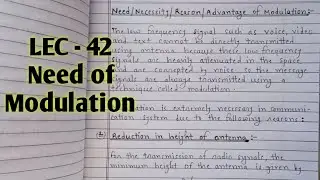 LEC - 42
Need of
Modulation
Need/Necessity/Reason/Advantage of Modulation:-
The low frequency signal such as voice, video
and text cannot be directly transmitted
using antenna because these low frequency
signals are heavily attenuated in the space
and are concepted by noise so the message
signals are always transmitted using a
technique called modulation.
Modulation is extremely necessary in communi-
cation system due to the following reasons:
Reduction in height of antenna:-
For the transmission of radio signals, the
minimum height of the antenna is given by